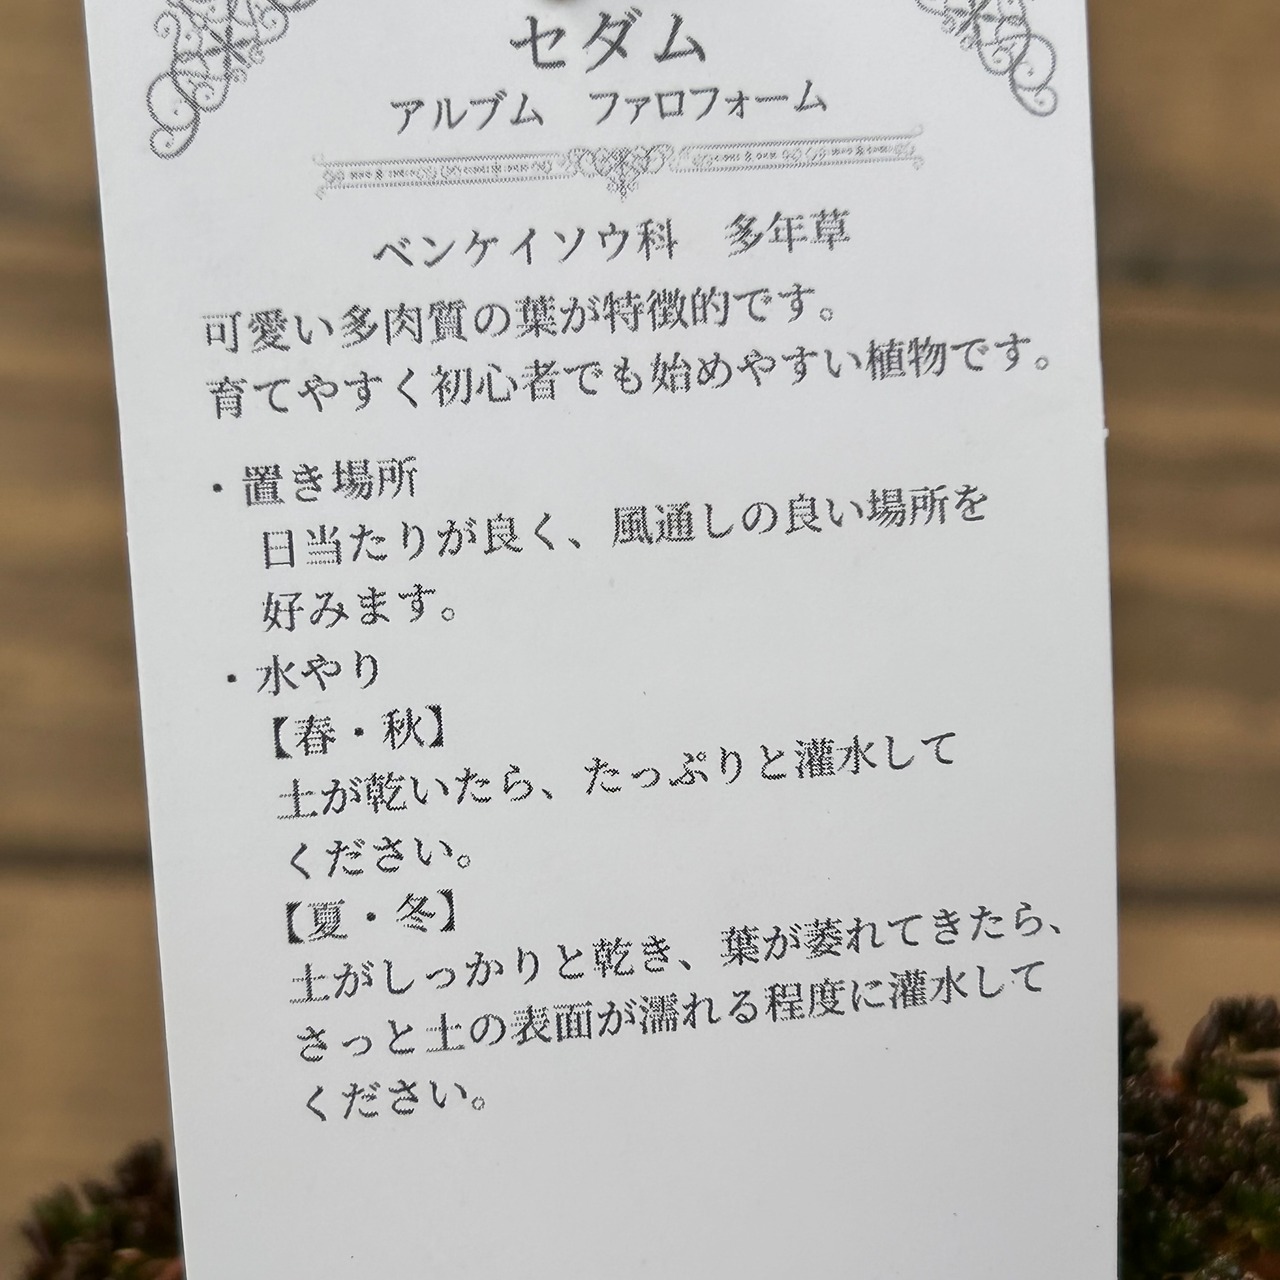 セダム
アルブム　ファロフォーム
ベンケイソウ科　多年草
可愛い多肉質の葉が特徴的です。
育てやすく初心者でも始めやすい植物です。
・置き場所
日当たりが良く、風通しの良い場所を
好みます。
・水やり
【春・秋】
土が乾いたら、たっぷりと灌水して
ください。
【夏・冬】
土がしっかりと乾き、葉が萎れてきたら、
さっと土の表面が濡れる程度に灌水して
ください。